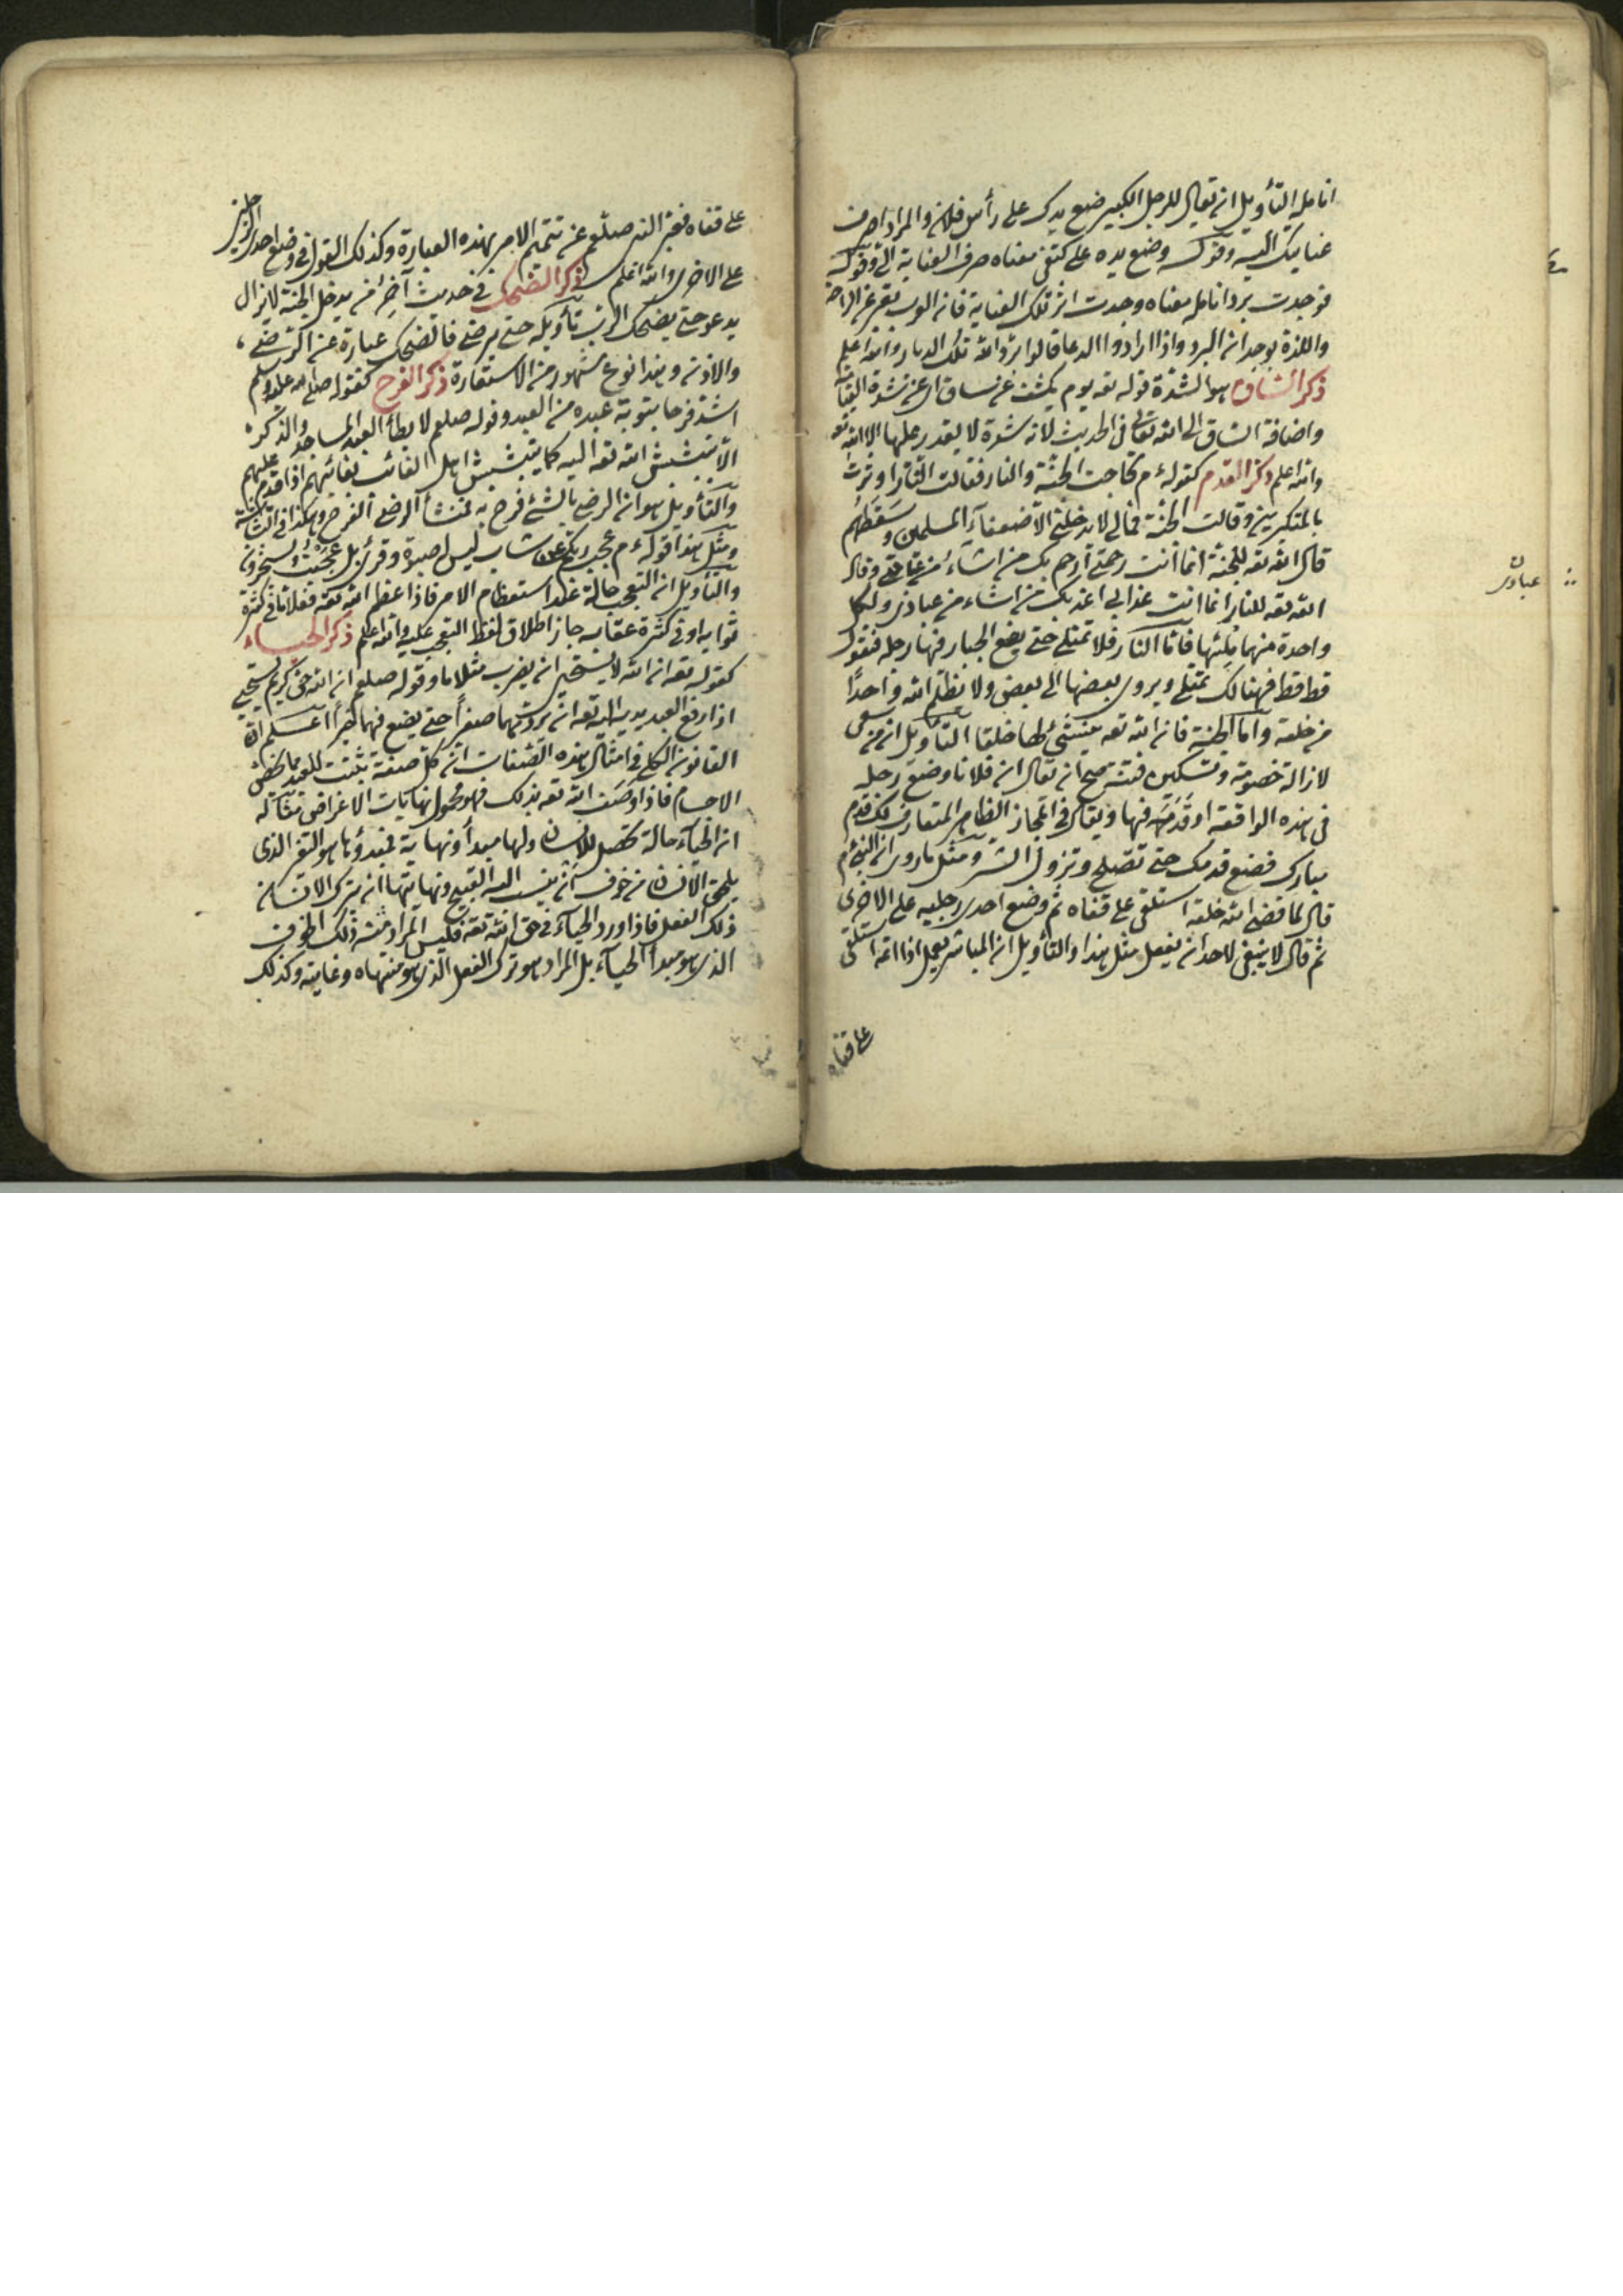 انامله التأويل ان يقال للرجل الكبير ضع يدك على رأس فلان والمراد اصرف
عنايتك اليه وقوله وضع يده على كتفى معناه صرف العناية الى وقوله
فوجدت برد انامله معناه وجدت اثر تلك العناية فان العرب تعبر عن الراحة
واللذة بوجدان البرد واذا ارادوا الدعا قالوا برد الله تلك الديار والله اعلم
ذكر الساق هو الشدة قوله تعه يوم يكشف عن ساق اى عن شدة القيامة
واضافة الساق الى الله تعالى فى الحديث لانه شدة لا يقدر عليها الا الله تعه
والله اعلم ذكر القدم كقوله ءم تحاجت الجنة والنار فقالت النار اوثرت
بالمتكبرين وقالت الجنة فمالى لا يدخلنى الا ضعفاء المسلمين وسقطهم
قال الله تعه للجنة انما انت رحمتى ارحم بك من اشاء من عبادى وقال
الله تعه للنار انما انت عذابى اعذب بك من اشاء من عبادى ولكل
واحدة منهما ملئها فاما النار فلا تمتلى حتى يضع الجبار فيها رجله فتقول
قط قط فهنالك تمتلى ويروى بعضها الى بعض ولا يظلم الله واحدًا
من خلقه واما الجنة فان الله تعه ينشئ لها خلقا التأويل ان من سعى
لازالة خصومة وتسكين فتنة صحيح ان يقال ان فلانا وضع رجله
فى هذه الواقعة او قدمه فيها ويقال فى المجاز الظاهر المتعارف لك قدم
مبارك فضع قدمك حتى تصلح وتزول الشر ومثل ما روى ان النبى ءم
قال لما قضى الله خلقه استلقى على قفاه ثم وضع احدى رجليه على الاخرى
ثم قال لا ينبغى لاحد ان يفعل مثل هذا والتأويل ان المباشر لعمل اذا اتمه استلقى
على قفاه
عبادى
على قفاه فعبر النبى صلعم عن تتميم الامر بهذه العبارة وكذلك القول فى وضع احدى الرجلين
على الاخرى والله اعلم ذكر الضحك فى حديث آخر من يدخل الجنة لا يزال
يدعو حتى يضحك الرب تأويله حتى يرضى فالضحك عبارة عن الرضى
والاذن وهذا نوع مشهور من الاستعارة ذكر الفرح كقوله صلى الله عليه وسلم
اشد فرحا بتوبة عبده من العبد وقوله صلعم لا يطأ العبد المساجد والذكر
الا تبشبش الله تعه اليه كما يتبشبش اهل الغائب بغائبهم اذا قدم عليهم
والتأويل هو ان الرضى بالشئ فرح به فمنشأ الرضى الفرح وهكذا فى البشاشة
ومثل هذا قوله ءم عجب ربكم من شاب ليس له صبوة وقرئ بل عجبت ويسخرون
والتأويل ان التعجب حالة عند استعظام الامر فاذا اعظم الله تعه فعلا ما فى كثرة
ثوابه او فى كثرة عقابه جاز اطلاق لفظ التعجب عليه والله اعلم ذكر الحياء
كقوله تعه ان الله لا يستحيى ان يضرب مثلا ما وقوله صلعم ان الله حى كريم يستحيى
اذا رفع العبد يديه اليه تعه ان يردهما صفرًا حتى يضع فيهما خيرًا اعلم ان
القانون الكلى فى امثال هذه الصفات ان كل صفة تثبت للعبد مما يختص
الاجسام فاذا وصف الله تعه بذلك فهو محمول نهايات الاعراض مثاله
ان الحياء حالة تحصل للانسان ولها مبدأ ونهاية فمبدؤها هو التغير الذى
يلحق الانسان من خوف ان ينسب اليه القبيح ونهايتها ان يترك الانسان
ذلك الفعل فاذا ورد الحياء فى حق الله تعه فليس المراد منه ذلك الخوف
الذى هو مبدأ الحياء بل المراد هو ترك الفعل الذى هو منتهاه وغايته وكذلك